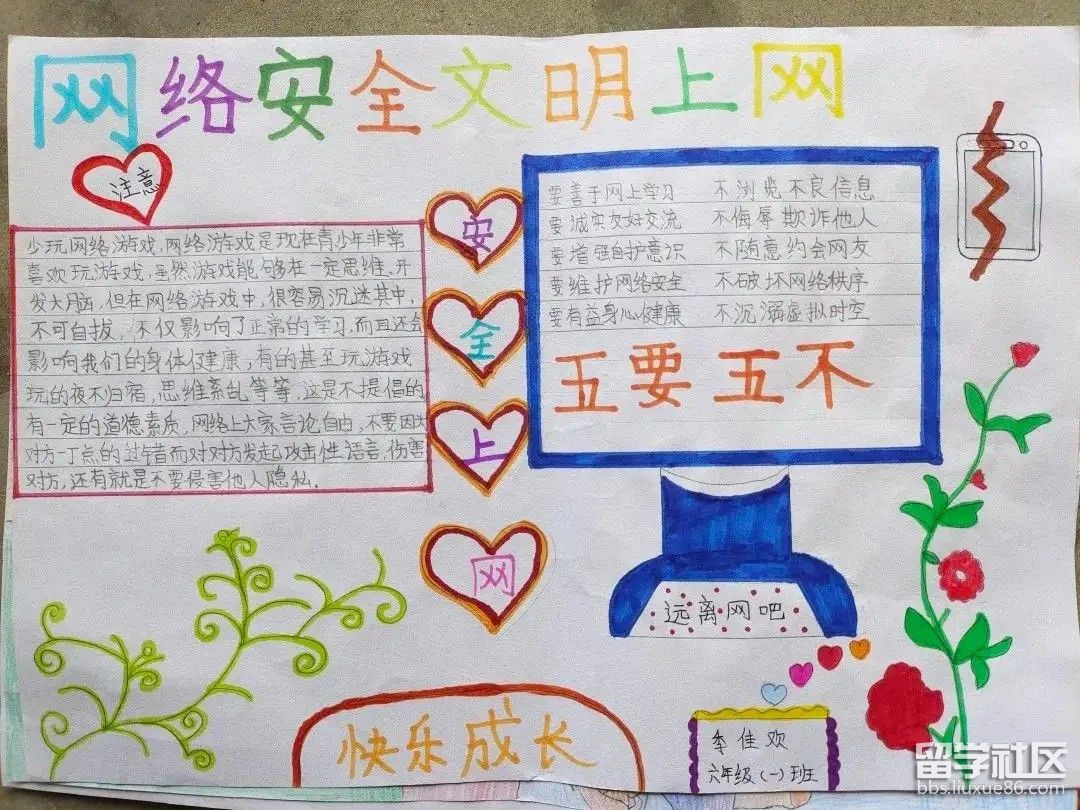 网络安全文明上网
注意
少玩网络游戏,网络游戏是现在青少年非常
喜欢玩游戏,虽然游戏能够在一定思维、开
发大脑,但在网络游戏中,很容易沉迷其中,
不可自拔,不仅影响了正常的学习,而且还会
影响我们的身体健康,有的甚至玩游戏
玩的夜不归宿,思维紊乱等等,这是不提倡的
有一定的道德素质,网络上大家言论自由,不要因为
对方一丁点的过错而对对方发起攻击性语言,伤害
对方,还有就是不要侵害他人隐私.
安
全
上
网
要善于网上学习 不浏览不良信息
要诚实友好交流 不侮辱欺诈他人
要增强自护意识 不随意约会网友
要维护网络安全 不破坏网络秩序
要有益身心健康 不沉溺虚拟时空
五要五不
远离网吧
快乐成长
李佳欢
六年级(一)班
留学社区
bbs.liuxue86.com